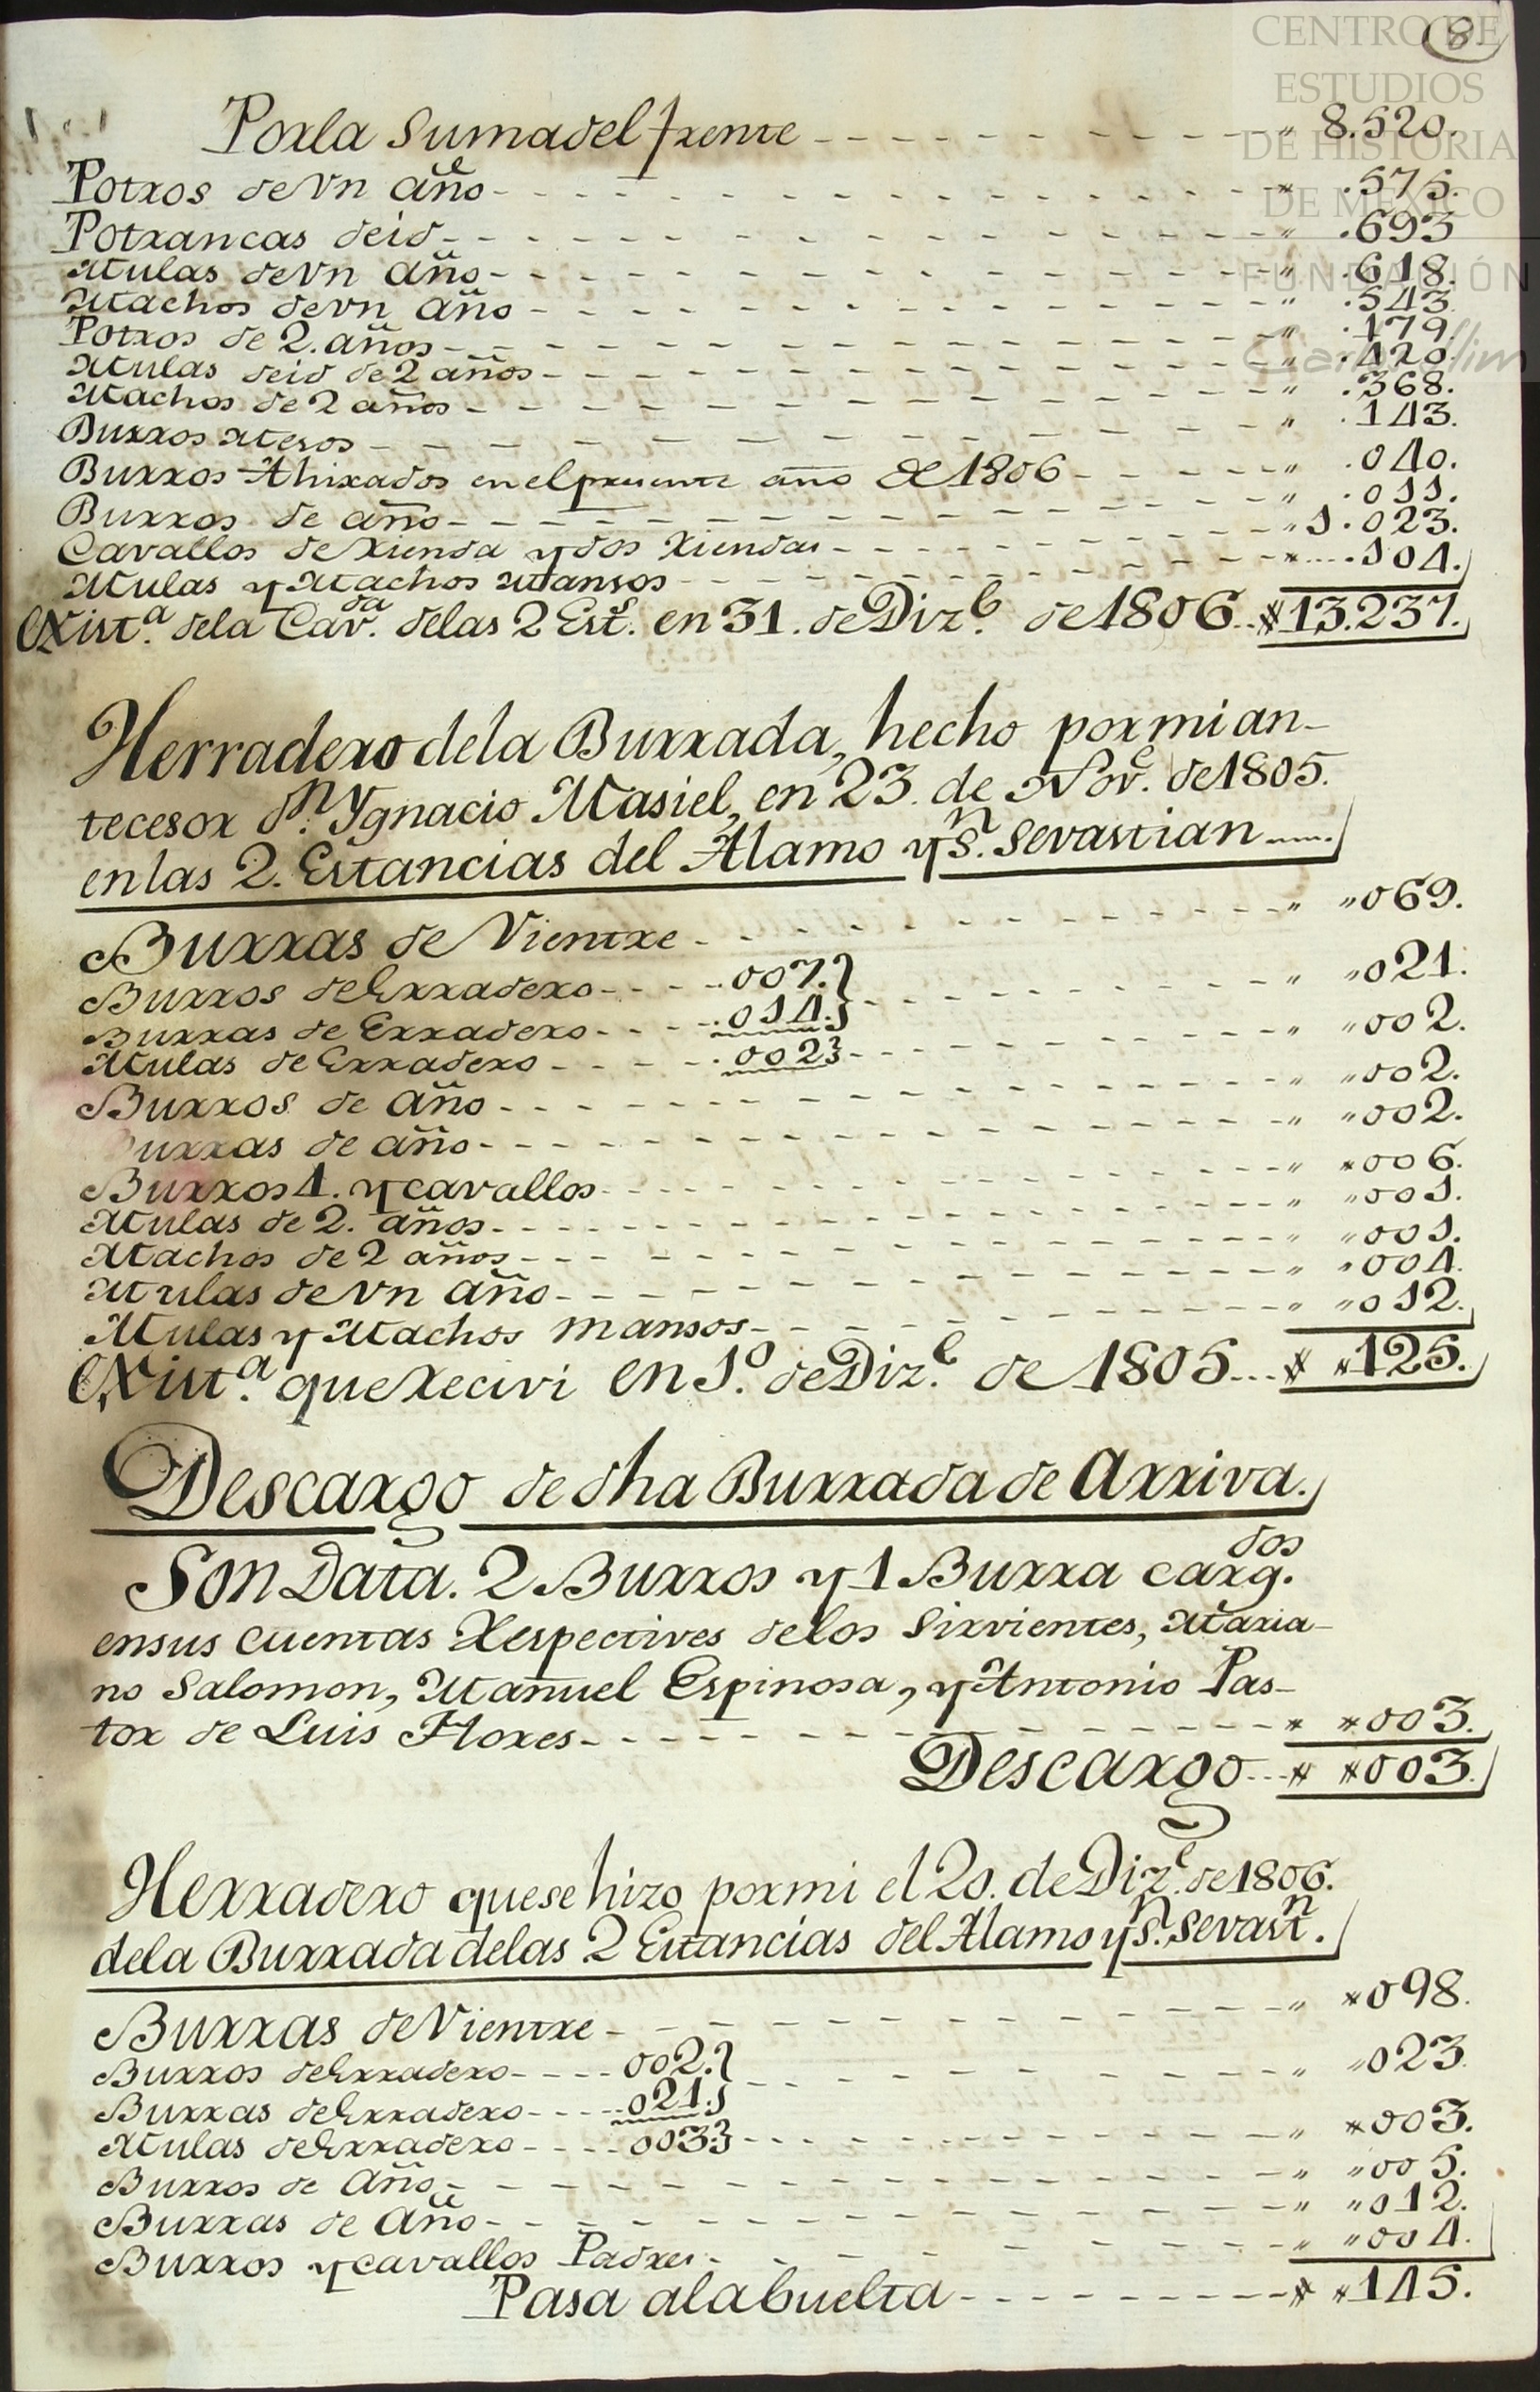 8.
Por la Suma del frente " 8.520.
Potros de Vn año " .575.
Potrancas de id " .693
Mulas de Vn año " .618.
Machos de vn año " .543
Potros de 2. años " .179.
Mulas de id de 2 años " .420
Machos de 2 años " .368.
Burros Meros " .143.
Burros Ahixados en el presente año de 1806 " .040.
Burros de año " .011.
Cavallos de rienda y dos riendas " 1.023.
Mulas y Machos mansos " .104.
Exist.ª dela Cav.da delas 2 Est.s en 31. de Diz.e de 1806 13.237.
Herradero dela Burrada, hecho por mi an-
tecesor d.n Ygnacio Masiel, en 23. de Nov.e de 1805.
en las 2. Estancias del Alamo y S.n Sevastian
Burras de Vientre " "069.
Burros de Erradero .007.
Burras de Erradero .014. " "021.
Mulas de Erradero .002 " "002.
Burros de año " "002.
Burras de año " "002.
Burros 4. y cavallos " "006.
Mulas de 2. años " "001.
Machos de 2 años " "001.
Mulas de Vn año " "004.
Mulas y Machos mansos " "012.
Exist.ª que recivi en 1.º de Diz.e de 1805 125.
Descargo de dha Burrada de Arriva.
Son Data. 2 Burros y 1 Burra carg.dos
en sus cuentas Respectives de los Sirvientes, Maria-
no Salomon, Manuel Espinosa, y Antonio Pas-
tor de Luis Flores 003.
Descargo 003.
Herradero que se hizo por mi el 20. de Diz.e de 1806.
dela Burrada delas 2 Estancias del Alamo y S.n Sevast.n
Burras de Vientre " 098.
Burros de Erradero 002.
Burras de Erradero .021. " "023
Mulas de Erradero 003 " 003.
Burros de Año " "005.
Burras de Año " "012.
Burros y cavallos Padres " "004.
Pasa a la buelta 145.
CENTRO DE
ESTUDIOS
DE HISTORIA
DE MÉXICO
FUNDACIÓN